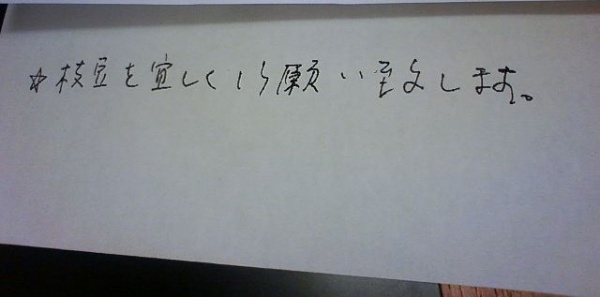 ☆枝豆を宜しくお願い致します。